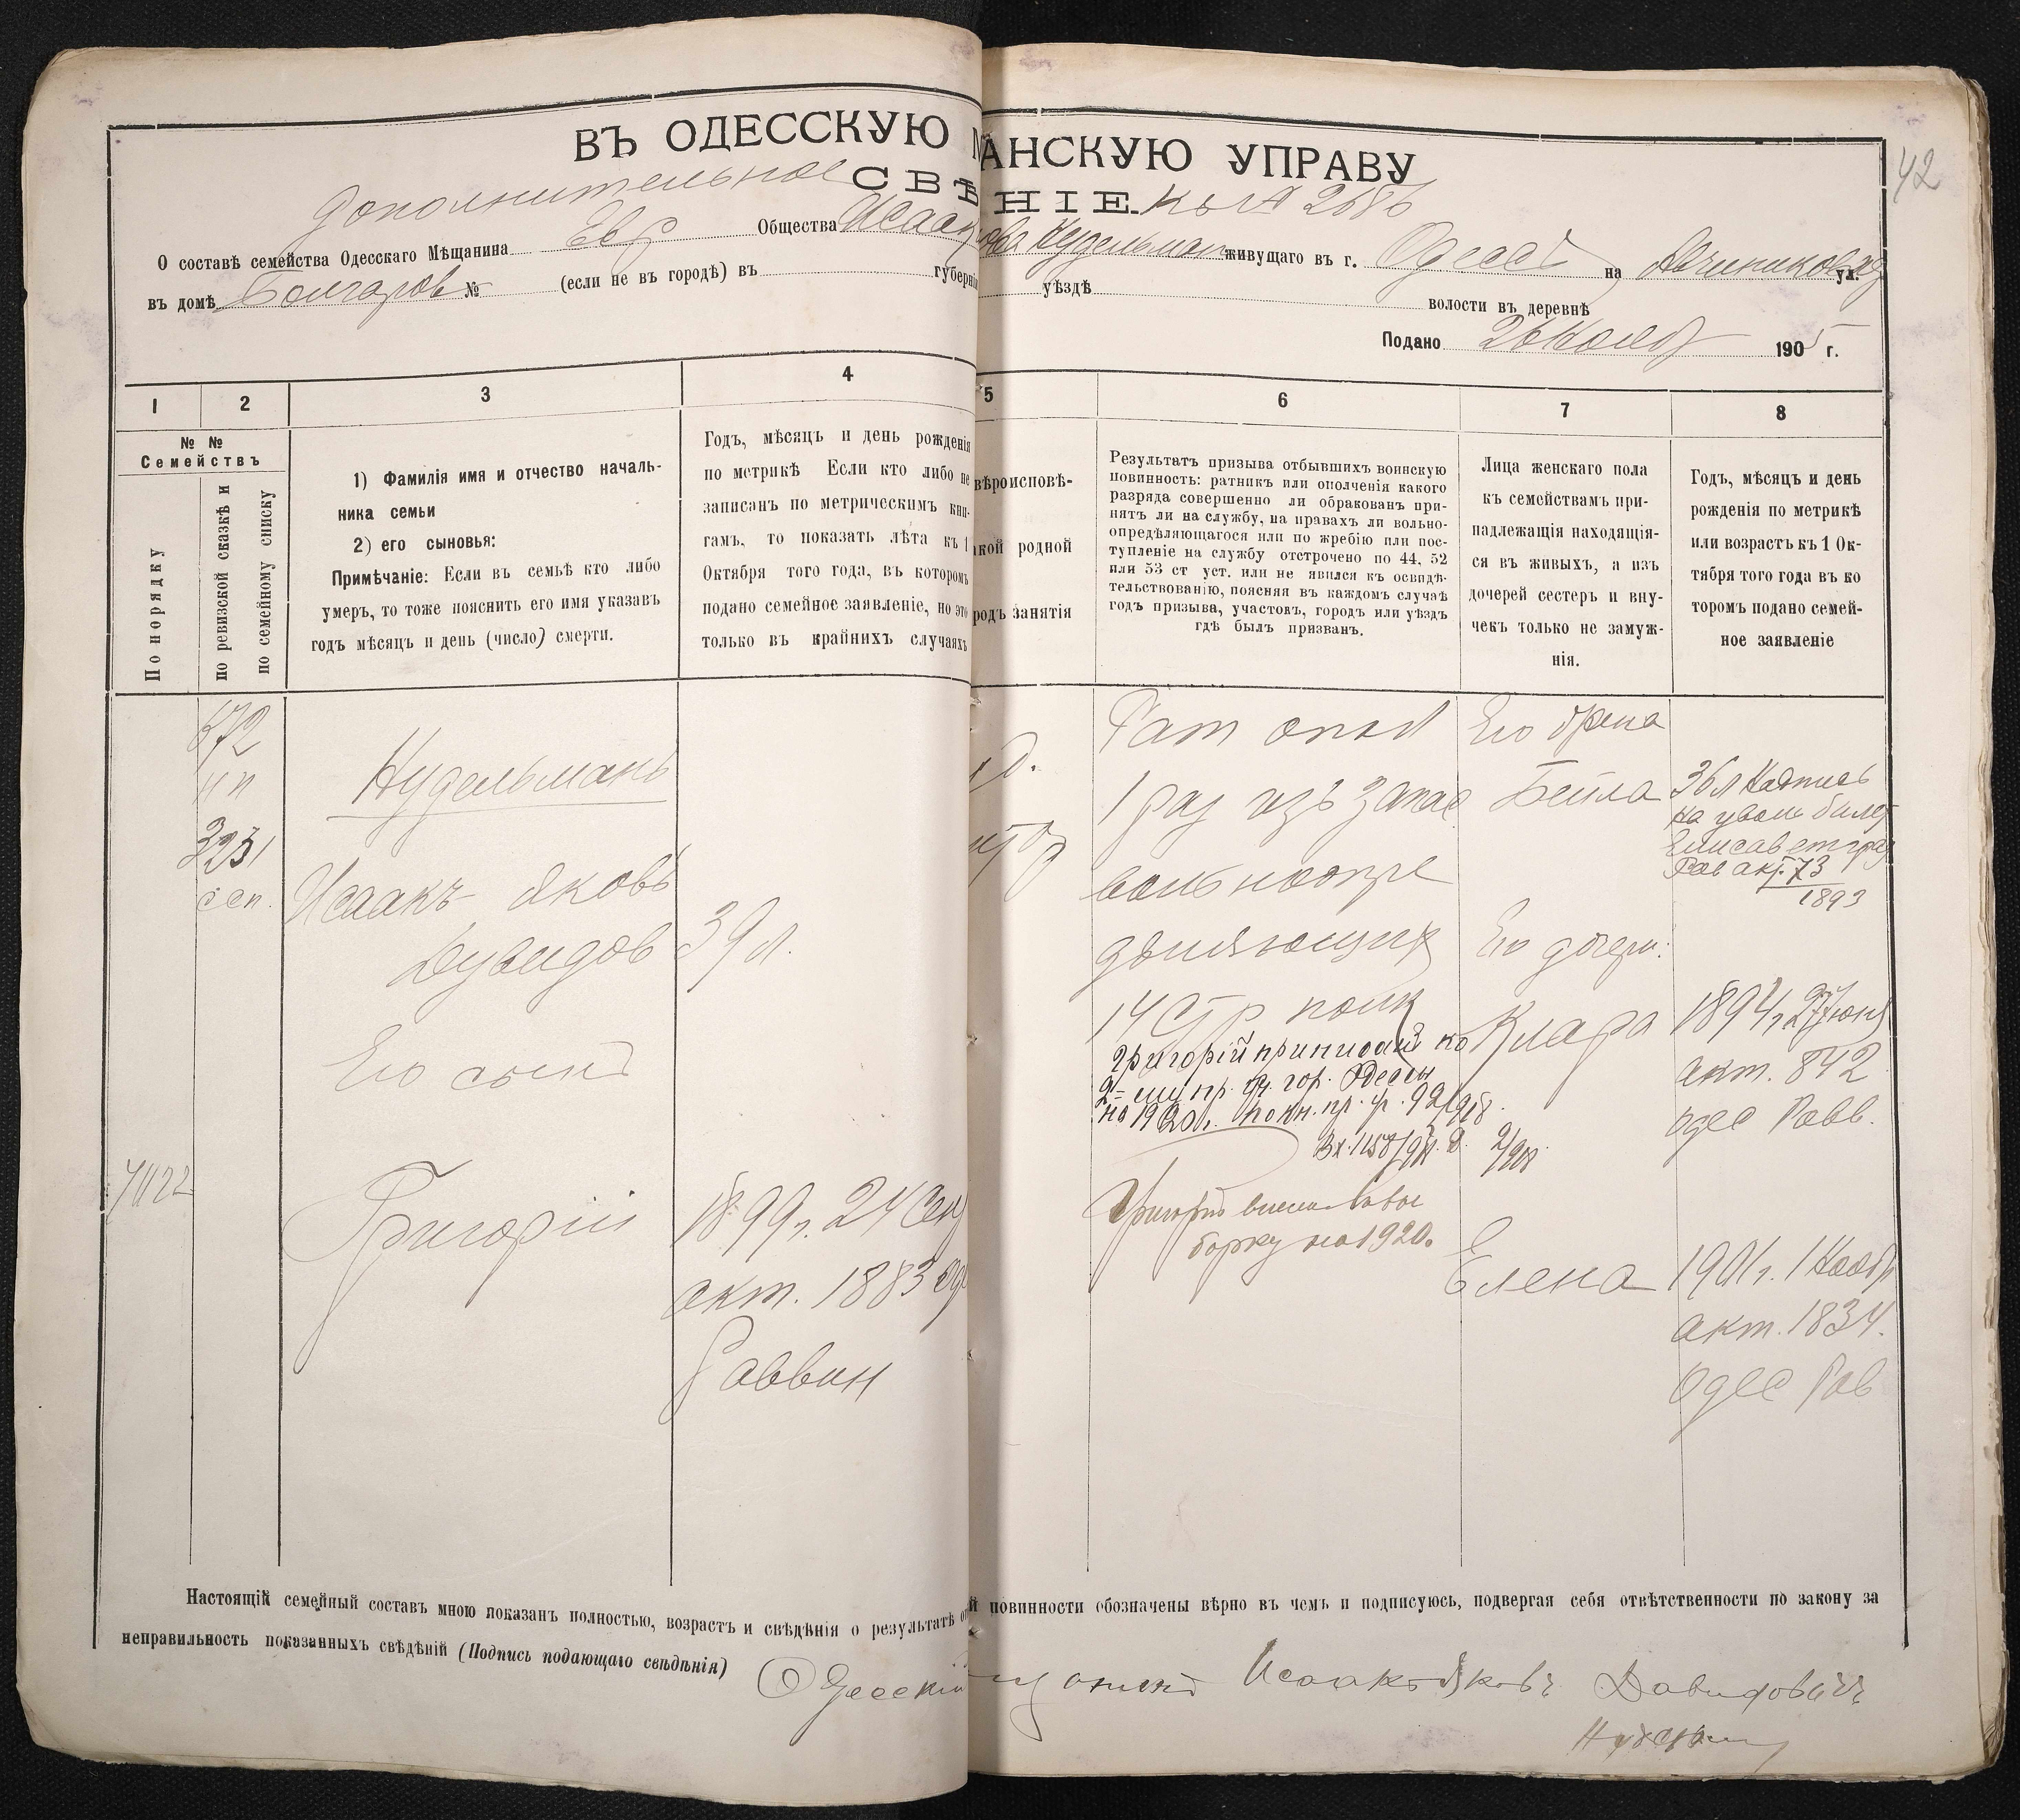 ВЪ ОДЕССКУЮ МѢ АНСКУЮ УПРАВУ
42
Дополнительное СВѢ НІЕ. къ № 2686
О составѣ семейства Одесскаго Мѣщанина Евр Общества Исаак Нудельман живущаго въ г. Одессѣ на ул.
въ домѣ Болгаров № (если не въ городѣ) въ губерніи уѣздѣ волости въ деревнѣ
Подано 26 Нояб 1905 г.
1 2 3 4 5 6 7 8
№ №
Семействъ
По порядку
по ревизской сказкѣ и
по семейному списку
1) Фамилія имя и отчество началь-
ника семьи
2) его сыновья:
Примѣчаніе: Если въ семьѣ кто либо
умеръ, то тоже пояснить его имя указавъ
годъ мѣсяцъ и день (число) смерти.
Годъ, мѣсяцъ и день рожденія
по метрикѣ Если кто либо не
записанъ по метрическимъ кни-
гамъ, то показать лѣта къ 1
Октября того года, въ которомъ
подано семейное заявленіе, но это
только въ крайнихъ случаяхъ
вѣроисповѣ-
акой родной
родъ занятія
Результатъ призыва отбывшихъ воинскую
повинность: ратникъ или ополченія какого
разряда совершенно ли обракованъ при-
нятъ ли на службу, на правахъ ли вольно-
опредѣляющагося или по жребію или пос-
тупленіе на службу отстрочено по 44, 52
или 53 ст уст. или не явился къ освидѣ-
тельствованію, поясняя въ каждомъ случаѣ
годъ призыва, участокъ, городъ или уѣздъ
гдѣ былъ призванъ.
Лица женскаго пола
къ семействамъ при-
надлежащія находящія-
ся въ живыхъ, а изъ
дочерей сестеръ и вну-
чекъ только не замуж-
нія.
Годъ, мѣсяцъ и день
рожденія по метрикѣ
или возрастъ къ 1 Ок-
тября того года въ ко
торомъ подано семей-
ное заявленіе
672
нп
3231
сеп.
Нудельманъ
Исаакъ-Яковъ
Дувидов 39 л.
Его сынъ
7022
Григорій
1899 г. 24 Сен
акт. 1883 од
Раввин
Рат опол
1 раз изъ запас
вольноопре
дѣляющих
14 Стр полк
Григорій приписанъ ко
2-му пр. уч. гор. Одессы
на 1920 г. по кн. пр. у. 92/918.
Вх. 1158/918. д. 2/908.
Григорій внесен
на 1920.
Его жена
Бейла
36 л Надпись
на увол билет
Елисаветград
Рав акт. 73
1893
Его дочери:
Клара
1894 г. 27 юня
акт. 842
одес Равв.
Елена
1901 г. 1 Нояб
акт. 1834.
Одес Рав
Настоящій семейный составъ мною показанъ полностью, возрастъ и свѣдѣнія о результатѣ от й повинности обозначены вѣрно въ чемъ и подписуюсь, подвергая себя отвѣтственности по закону за
неправильность показанныхъ свѣдѣній (Подпись подающаго свѣдѣнія)
Одесскій Исаакъ Яковъ Давидовичъ
Нудельман